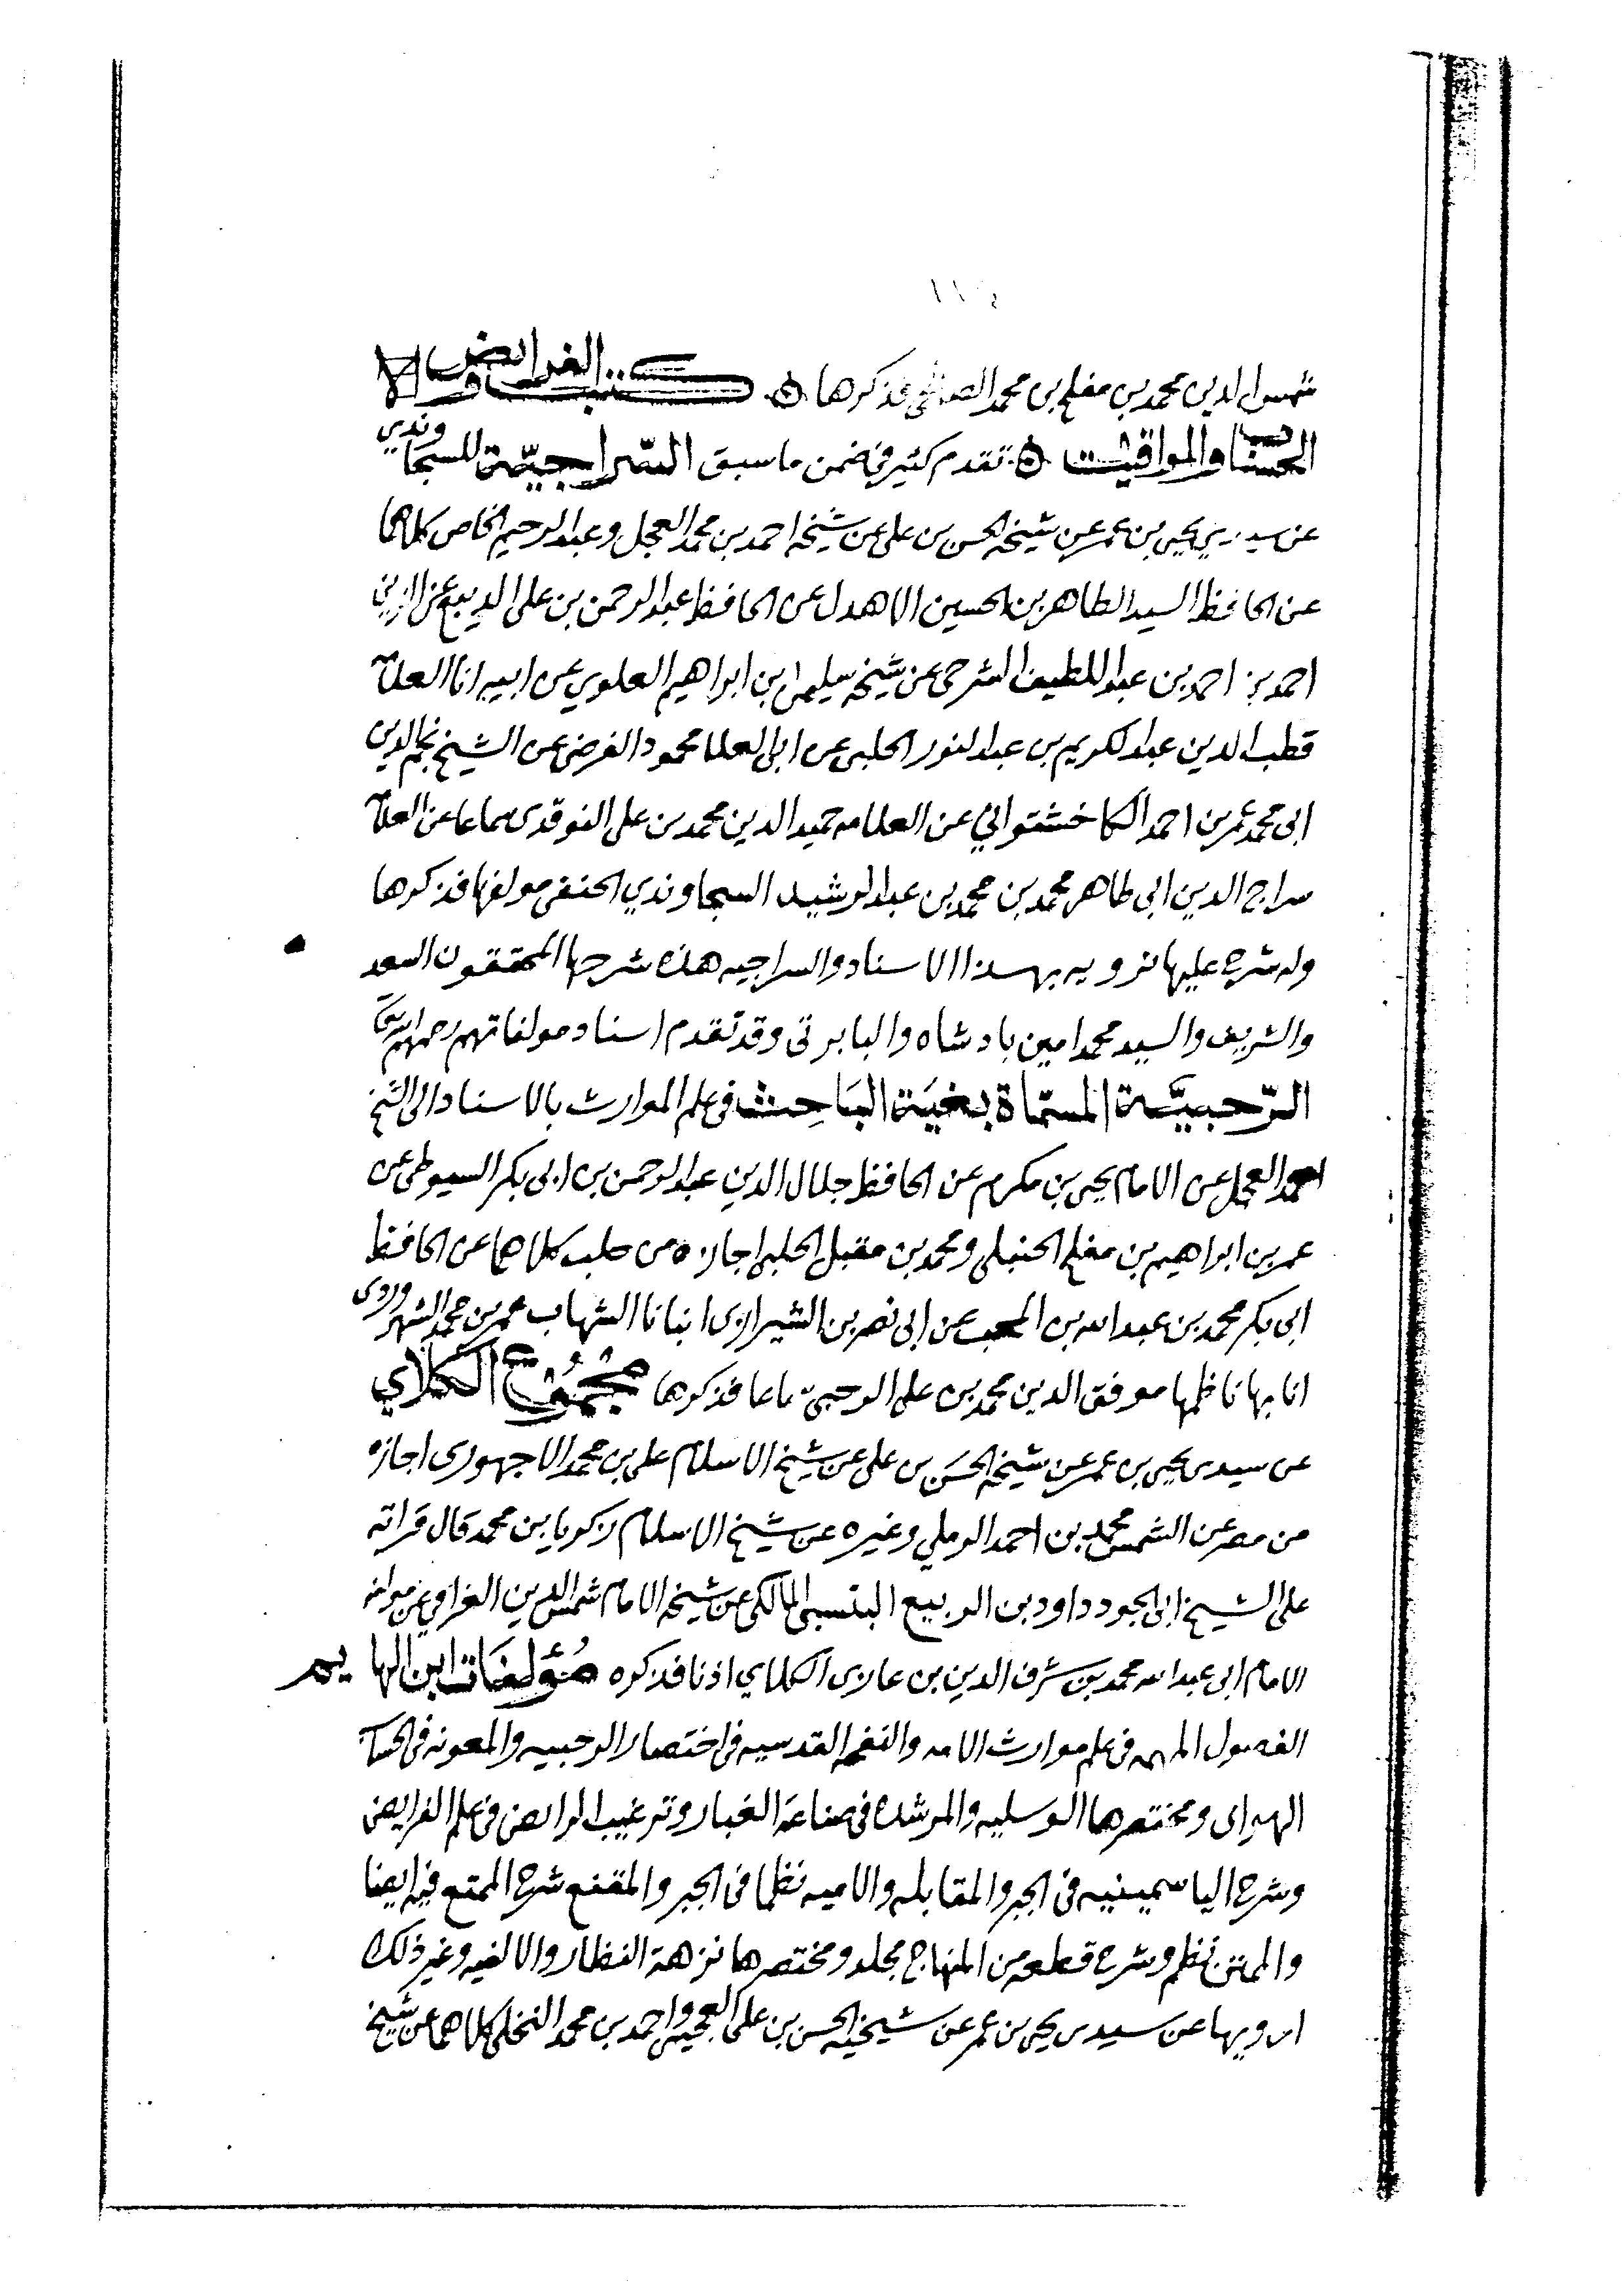 شمس الدين محمد بن مفلح بن محمد فذكرها كتب الفرايض
الحساب والمواقيت تقدم كثير في ضمن ما سبق السراجية للسجاوندي
عن سيدي يحيى بن عمر عن شيخه الحسن بن علي عن شيخه احمد بن محمد العجل وعبد الرحيم الخاص كلاهما
عن الحافظ السيد الطاهر بن الحسين الاهدل عن الحافظ عبد الرحمن بن علي الديبع عن الزين
احمد بن احمد بن عبد اللطيف الشرجى عن شيخه سليمن بن ابراهيم العلوي عن ابيه انا العلا
قطب الدين عبد الكريم بن عبد النور الحلبى عن ابى العلا محمود الفرضى عن الشيخ نجم الدين
ابى محمد عمر بن احمد الكاخشتواني عن العلامه حميد الدين محمد بن على النوقدى سماعا عن العلا
سراج الدين ابى طاهر محمد بن محمد بن عبد الرشيد السجاوندي الحنفى مولفها فذكرها
وله شرح عليها نرويه بهذا الاسناد والسراجيه هذه شرحها المحققون السعد
والشريف والسيد محمد امين بادشاه والبابرتى وقد تقدم اسناد مولفاتهم رحمهم الله
الرّحبيَّة المسمّاة بغيَة البَاحِث فى علم الموارث بالاسناد الى الشيخ
احمد العجل عن الامام يحيى بن مكرم عن الحافظ جلال الدين عبد الرحمن بن ابى بكر السيوطى عن
عمر بن ابراهيم بن مفلح الحنبلى ومحمد بن مقبل الحلبى اجازه من حلب كلاهما عن الحافظ
ابى بكر محمد بن عبد الله بن المحب عن ابى نصر بن الشيرازى انبانا الشهاب عمر بن محمد السهروردى
انا بها ناظمها موفق الدين محمد بن على الرحبيّ فذكرها مجموع الكلاي
عن سيدى يحيى بن عمر عن شيخه الحسَن بن على عن شيخ الاسلام على بن محمد الاجهورى اجازه
من مصر عن الشمس محمد بن احمد الرملي وغيره عن شيخ الاسلام زكريا بن محمد قال قراته
على الشيخ ابى الجود داود بن الربيع البنبى المالكى عن شيخه الامام شمس الدين الغراقي عن مولفه
الامام ابى عبد الله محمد بن شرف الدين بن عازى الكلاي اذنا فذكره مُؤلفَات ابن الهايم
الفصول المهمه فى علم موارث الامه والنفحه القدسيه فى اختصار الرحبيه والمعونه فى الحساب
الهواى ومختصرها الوسليه والمرشده فى صناعة الغبار وترغيب الرايض فى علم الفرايض
وشرح الياسمينيه فى الجبر والمقابله والاميه نظما فى الجبر والمقنع شرح الممتع فيه ايضا
والممتن نظم وشرح قطعه من المنهاج مجلد ومختصرها نزهة النظار والالفيه وغير ذلك
ارويها عن سيدى يحيى بن عمر عن شيخيه الحسن بن على العجيمى واحمد بن محمد النخلى كلاهما عن شيخ